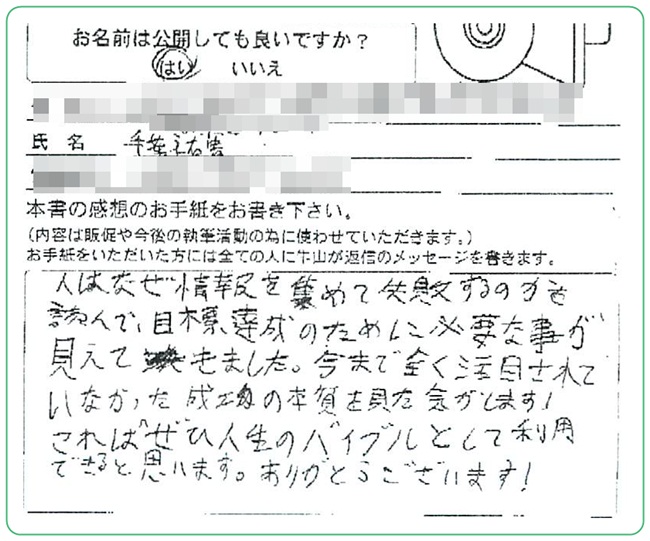 お名前は公開しても良いですか？
はい いいえ
氏 名
本書の感想のお手紙をお書き下さい。
（内容は販促や今後の執筆活動の為に使わせていただきます。）
お手紙をいただいた方には全ての人に下山が返信のメッセージを書きます。
人はなぜ情報を集めて失敗するのかを
読んで、目標達成のために必要な事が
見えて きました。今まで全く注目されて
いなかった成功の本質を見た気がします！
これはぜひ人生のバイブルとして利用
できると思います。ありがとうございます！